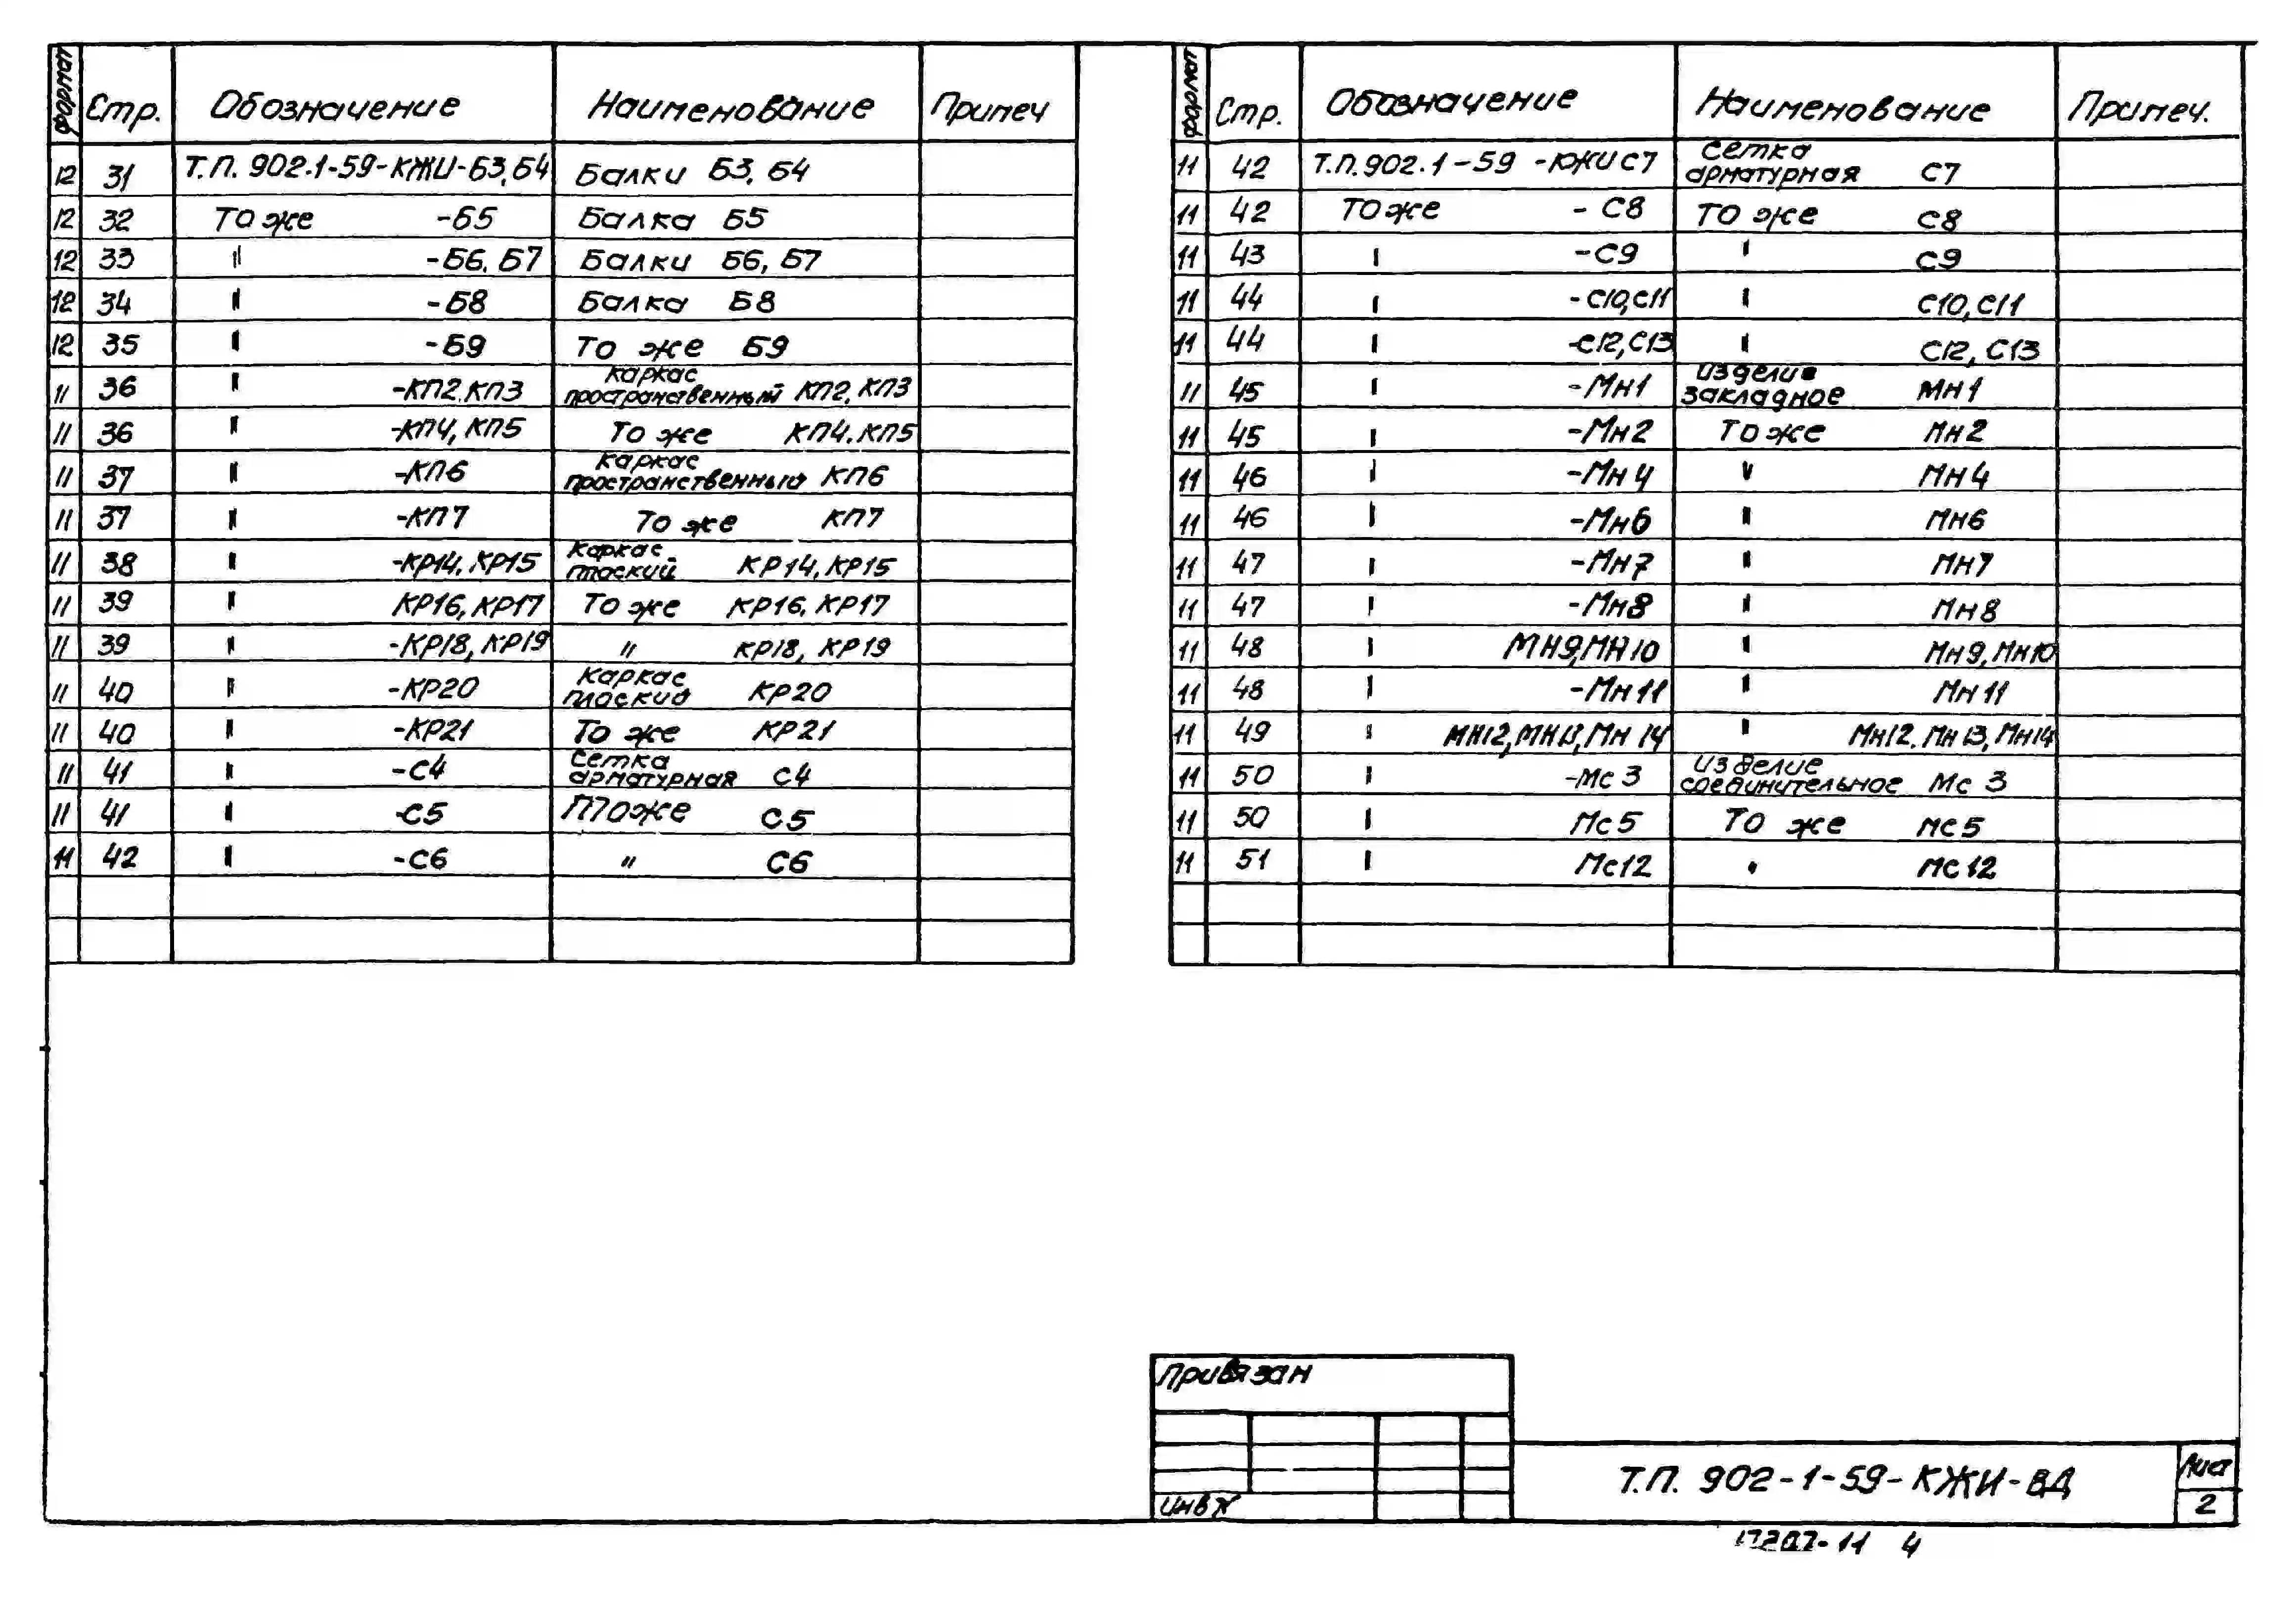 формат Стр. Обозначение Наименование Примеч
12 31 Т.П. 902.1-59-КЖИ-Б3,Б4 Балки Б3, Б4
12 32 То же -Б5 Балка Б5
12 33 " -Б6, Б7 Балки Б6, Б7
12 34 " -Б8 Балка Б8
12 35 " -Б9 То же Б9
11 36 " -КП2,КП3 каркас пространственный КП2, КП3
11 36 " -КП4, КП5 То же КП4, КП5
11 37 " -КП6 каркас пространственный КП6
11 37 " -КП7 То же КП7
11 38 " -КР14, КР15 Каркас плоский КР14, КР15
11 39 " КР16, КР17 То же КР16, КР17
11 39 " -КР18, КР19 " КР18, КР19
11 40 " -КР20 Каркас плоский КР20
11 40 " -КР21 То же КР21
11 41 " -С4 Сетка арматурная С4
11 41 " -С5 То же С5
11 42 " -С6 " С6
формат Стр. Обозначение Наименование Примеч.
11 42 Т.П.902.1-59-КЖИ С7 Сетка арматурная С7
11 42 То же - С8 То же С8
11 43 " -С9 " С9
11 44 " -С10,С11 " С10, С11
11 44 " -С12,С13 " С12, С13
11 45 " -Мн1 изделие закладное Мн1
11 45 " -Мн2 То же Мн2
11 46 " -Мн4 " Мн4
11 46 " -Мн6 " Мн6
11 47 " -Мн7 " Мн7
11 47 " -Мн8 " Мн8
11 48 " МН9,МН10 " Мн9, Мн10
11 48 " -Мн11 " Мн11
11 49 " МН12,МН13,Мн14 " Мн12, Мн13, Мн14
11 50 " -Мс3 изделие соединительное Мс 3
11 50 " Мс5 То же Мс5
11 51 " Мс12 " Мс12
Привязан
Инв №
Т.П. 902-1-59-КЖИ-ВД
Лист
2
17207-11 4